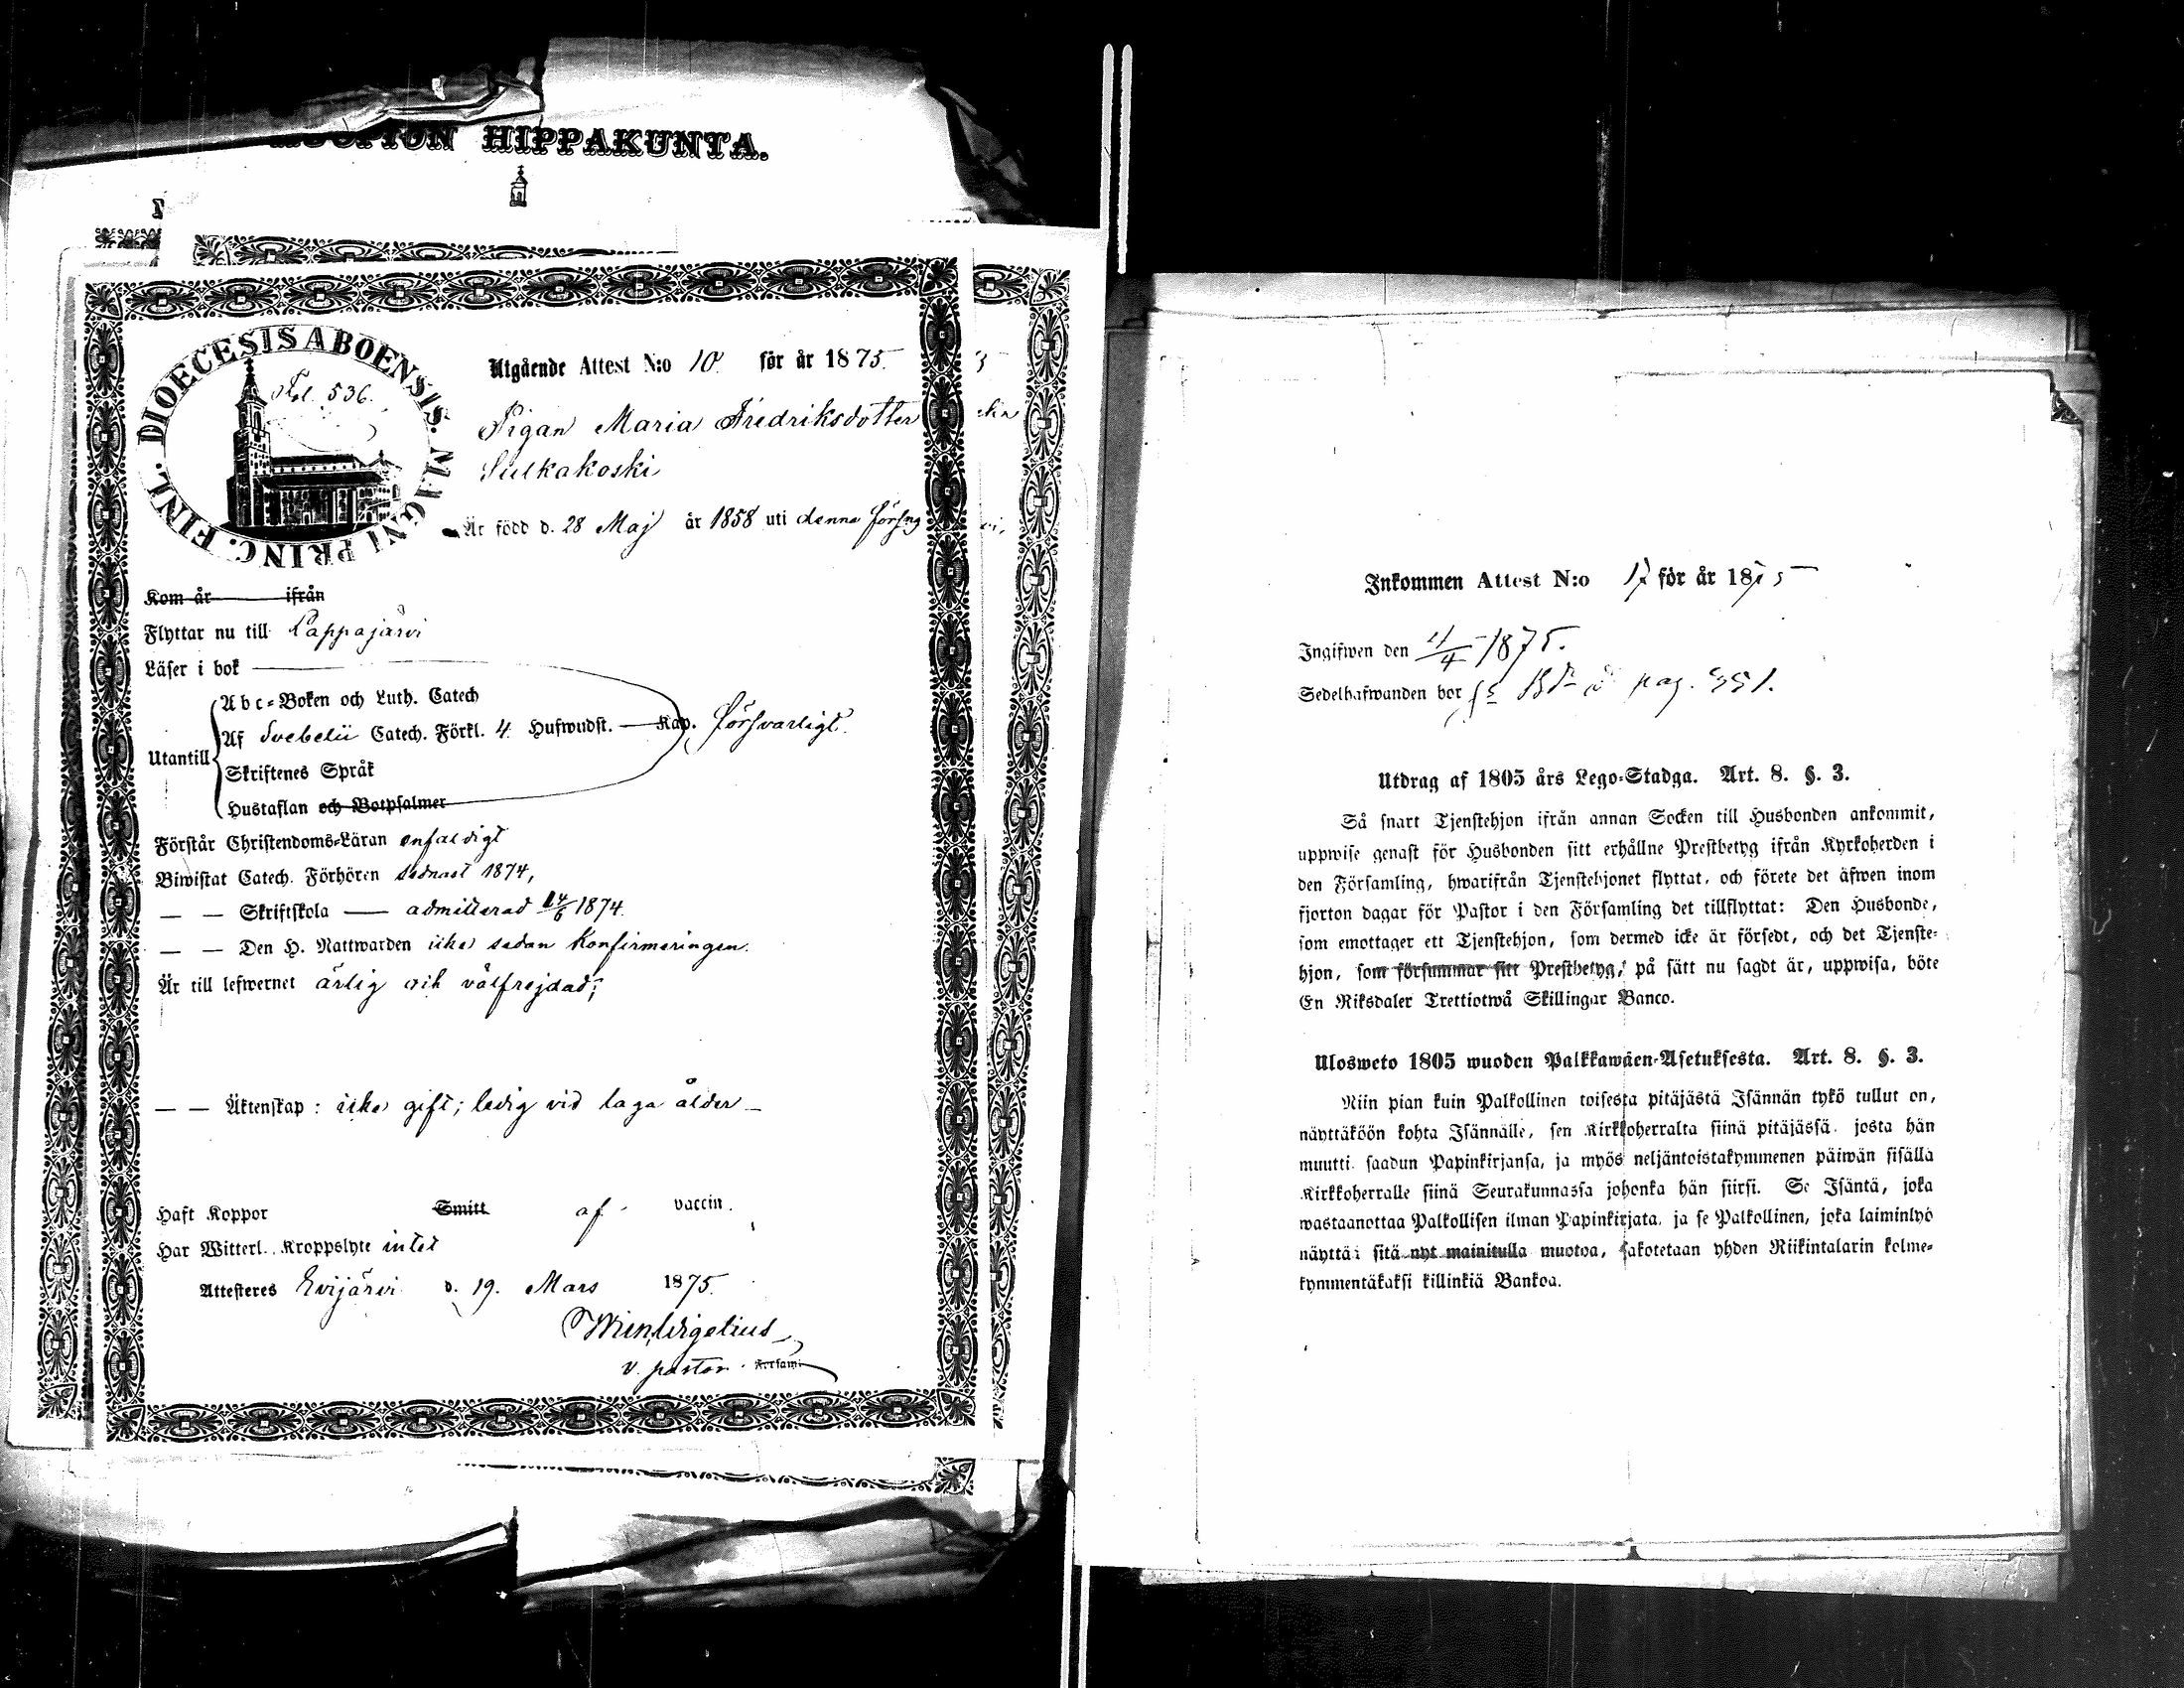 HIPPAKUNTA.
DIOECESIS ABOENSIS. MAGNI PRINC. FINL.
Fol. 536.
Utgående Attest N:o 10. för år 1875.
Pigan Maria Fredriksdotter
Sulkakoski
Är född d. 28 Maj år 1858 uti denna förs̅ng
Kom år ifrån
Flyttar nu till Lappajärvi
Läser i bok
Utantill
Abc-Boken och Luth. Catech
Af Svebelii Catech. Förkl. 4 Hufwudst. Kap. försvarligt.
Skriftenes Språk
Hustaflan och Botpsalmer
Förstår Christendoms-Läran enfaldigt
Biwistat Catech. Förhören sednast 1874,
— — Skriftskola — admitterad 14/6 1874.
— — Den H. Nattwarden icke sedan Konfirmeringen.
Är till lefwernet ärlig och välfrejdad;
— — Äktenskap: icke gift; ledig vid laga ålder —
Haft Koppor Smitt af vaccin.
Har Witterl. Kroppslyte intet
Attesteres Evijärvi d. 19. Mars 1875.
v. pastor.
Inkommen Attest N:o 17 för år 1875
Ingifwen den 11/4 1875.
Sedelhafwanden bor pag. 351.
Utdrag af 1805 års Lego-Stadga. Art. 8. §. 3.
Så snart Tjenstehjon ifrån annan Socken till Husbonden ankommit,
uppwise genast för Husbonden sitt erhållne Prestbetyg ifrån Kyrkoherden i
den Församling, hwarifrån Tjenstehjonet flyttat, och förete det äfwen inom
fjorton dagar för Pastor i den Församling det tillflyttat: Den Husbonde,
som emottager ett Tjenstehjon, som dermed icke är försedt, och det Tjenste-
hjon, som försummar sitt Prestbetyg, på sätt nu sagdt är, uppwisa, böte
En Riksdaler Trettiotwå Skillingar Banco.
Ulosweto 1805 wuoden Palkkawäen-Asetuksesta. Art. 8. §. 3.
Niin pian kuin Palkollinen toisesta pitäjästä Isännän tykö tullut on,
näyttäköön kohta Isännälle, sen Kirkkoherralta siinä pitäjässä, josta hän
muutti, saadun Papinkirjansa, ja myös neljäntoistakymmenen päiwän sisällä
Kirkkoherralle siinä Seurakunnassa johonka hän siirsi. Se Isäntä, joka
wastaanottaa Palkollisen ilman Papinkirjata, ja se Palkollinen, joka laiminlyö
näyttää sitä nyt mainitulla muotoa, sakotetaan yhden Riikintalarin kolme-
kymmentäkaksi killinkiä Bankoa.